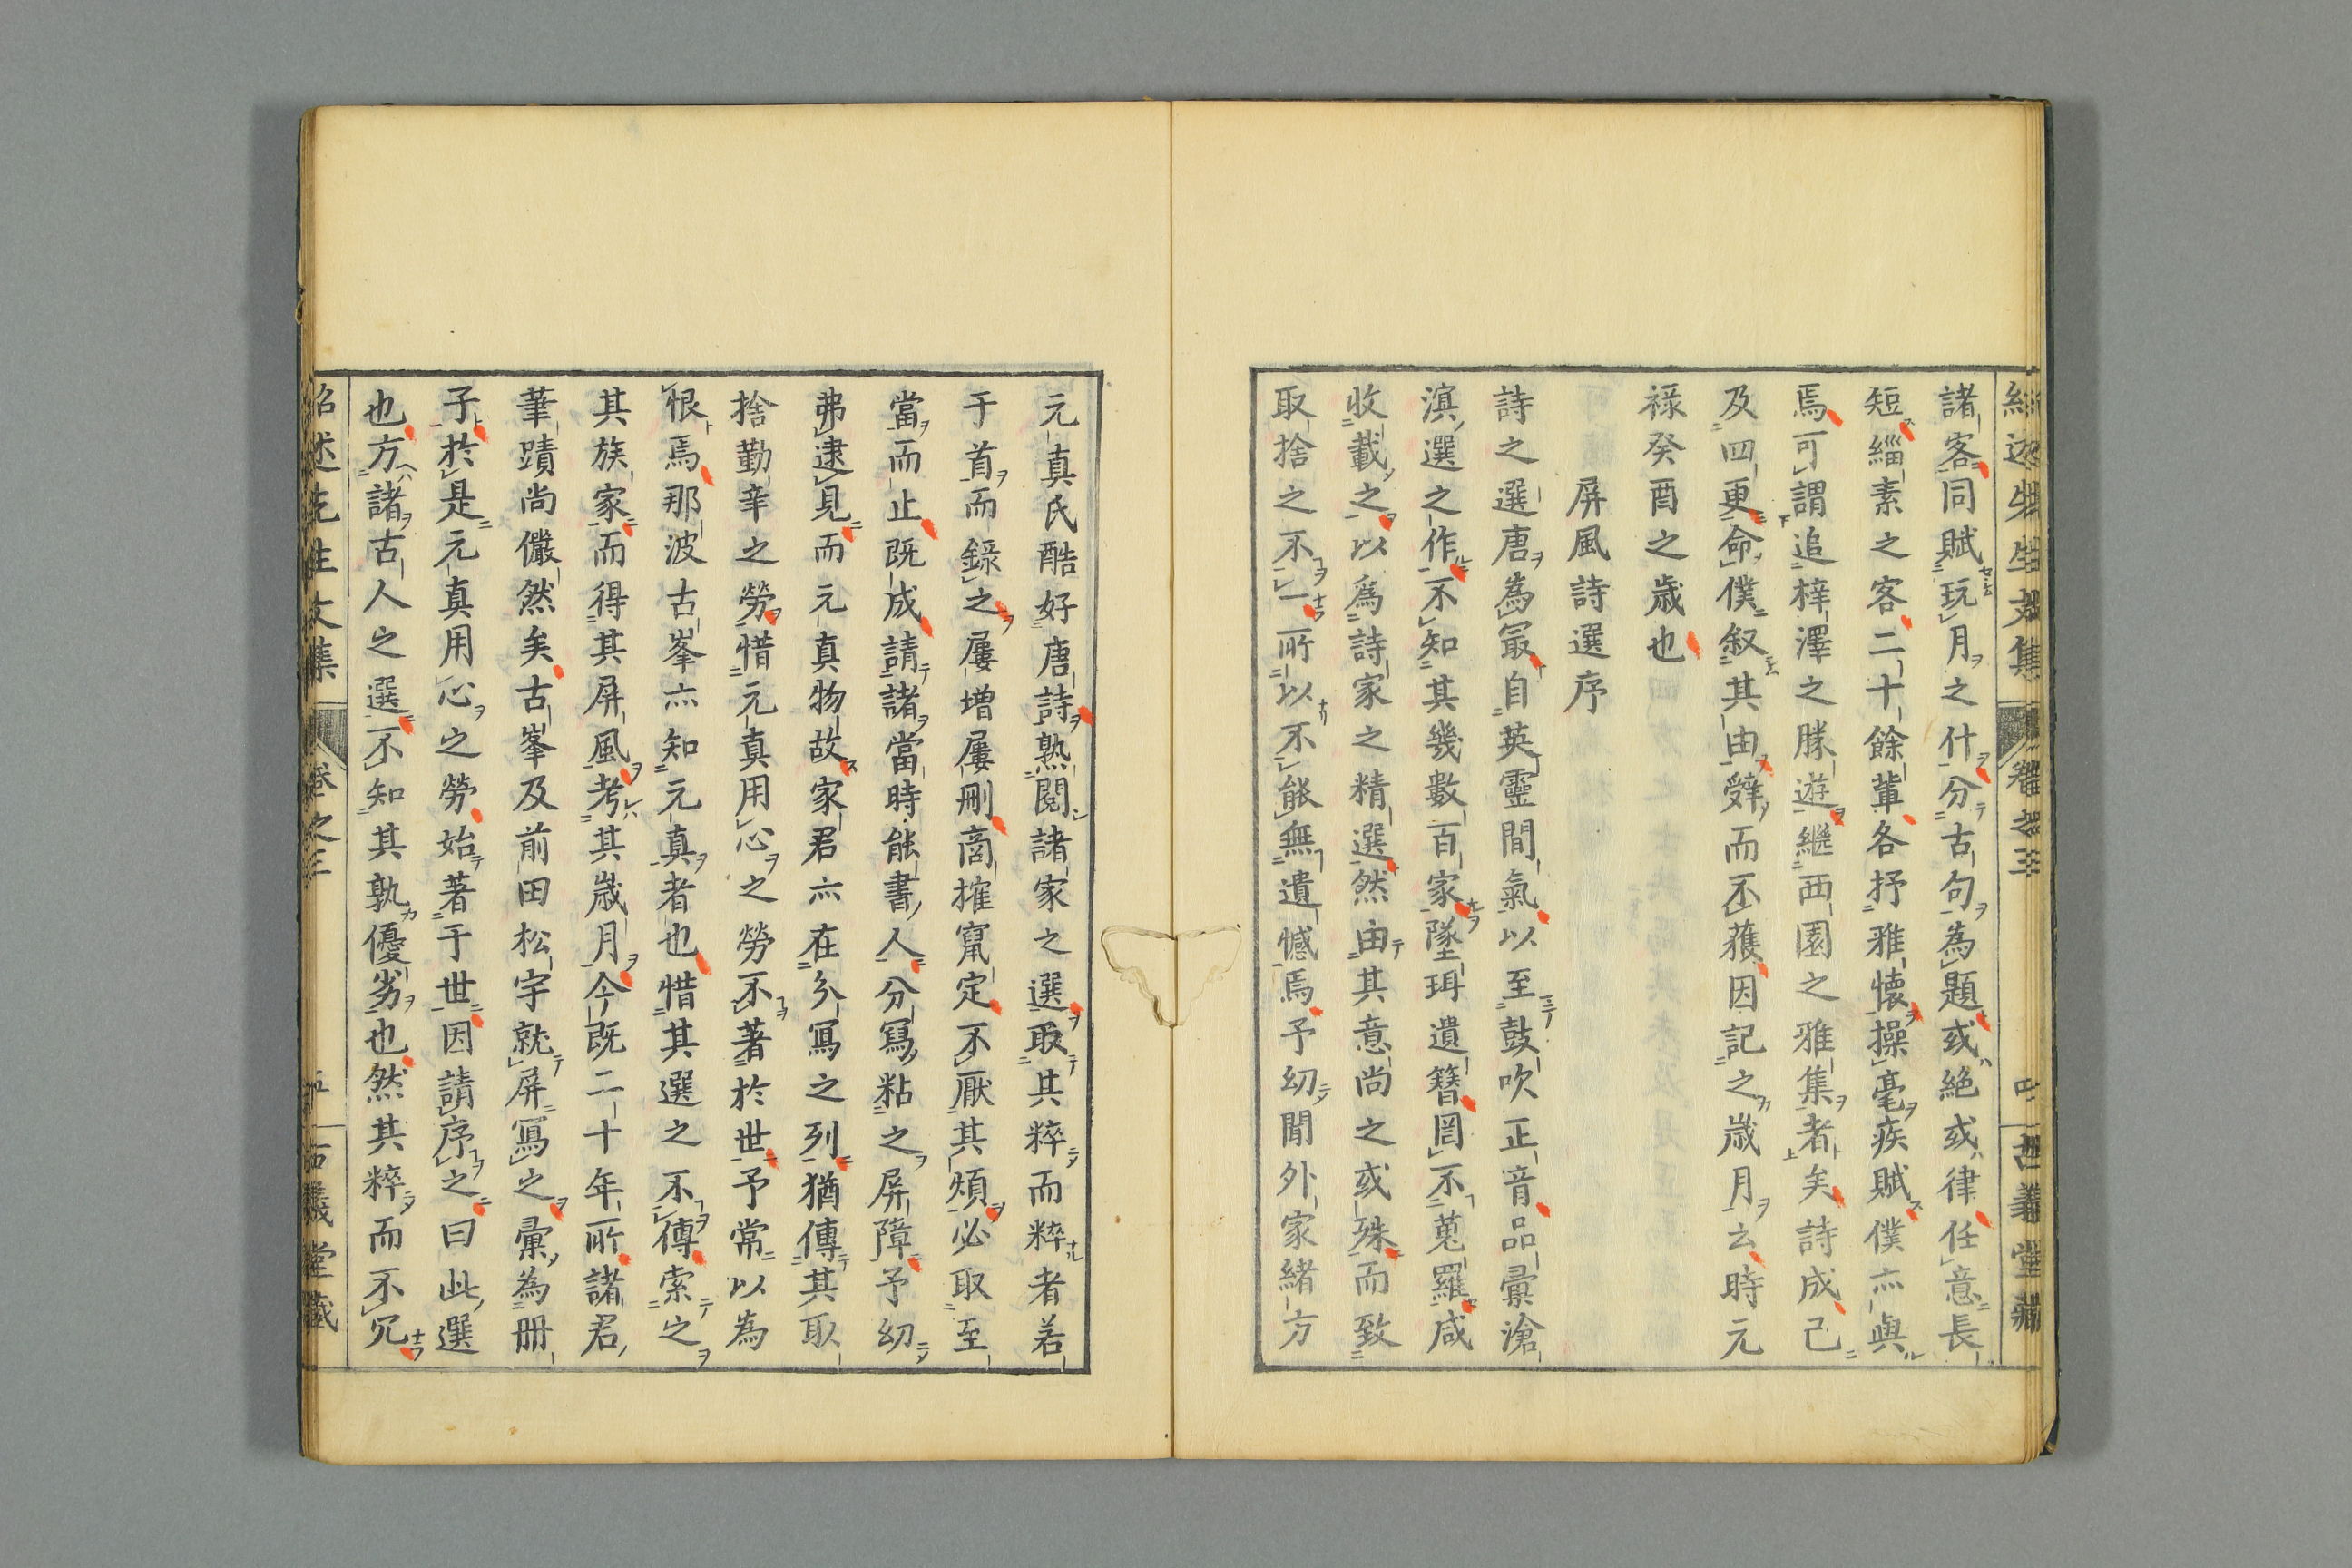 紹述先生文集 卷之三 四 古義堂藏
諸客同賦玩月之什分古句為題或絶或律任意長
短緇素之客二十餘輩各抒雅懷操毫疾賦僕亦與
焉可謂追梓澤之勝遊繼西園之雅集者矣詩成已
及四更命僕叙其由辤而不獲因記之歲月云時元
祿癸酉之歲也
屏風詩選序
詩之選唐為最自英靈間氣以至鼓吹正音品彙滄
溟選之作不知其幾數百家墜珥遺簪罔不蒐羅咸
收載之以為詩家之精選然由其意尚之或殊而致
取捨之不一所以不能無遺憾焉予幼聞外家緒方
元真氏酷好唐詩熟閲諸家之選取其粹而粹者若
于首而錄之屢増屢刪商搉竄定不厭其煩必取至
當而止既成請諸當時能書人分冩粘之屏障予幼
弗逮見而元真物故家君亦在分冩之列猶傳其取
捨勤辛之勞惜元真用心之勞不著於世予常以為
恨焉那波古峯亦知元真者也惜其選之不傳索之
其族家而得其屏風考其歲月今既二十年所諸君
筆蹟尚儼然矣古峯及前田松宇就屏冩之彙為冊
子於是元真用心之勞始著于世因請序之曰此選
也方諸古人之選不知其孰優劣也然其粹而不冗
紹述先生文集 卷之三 五 古義堂藏